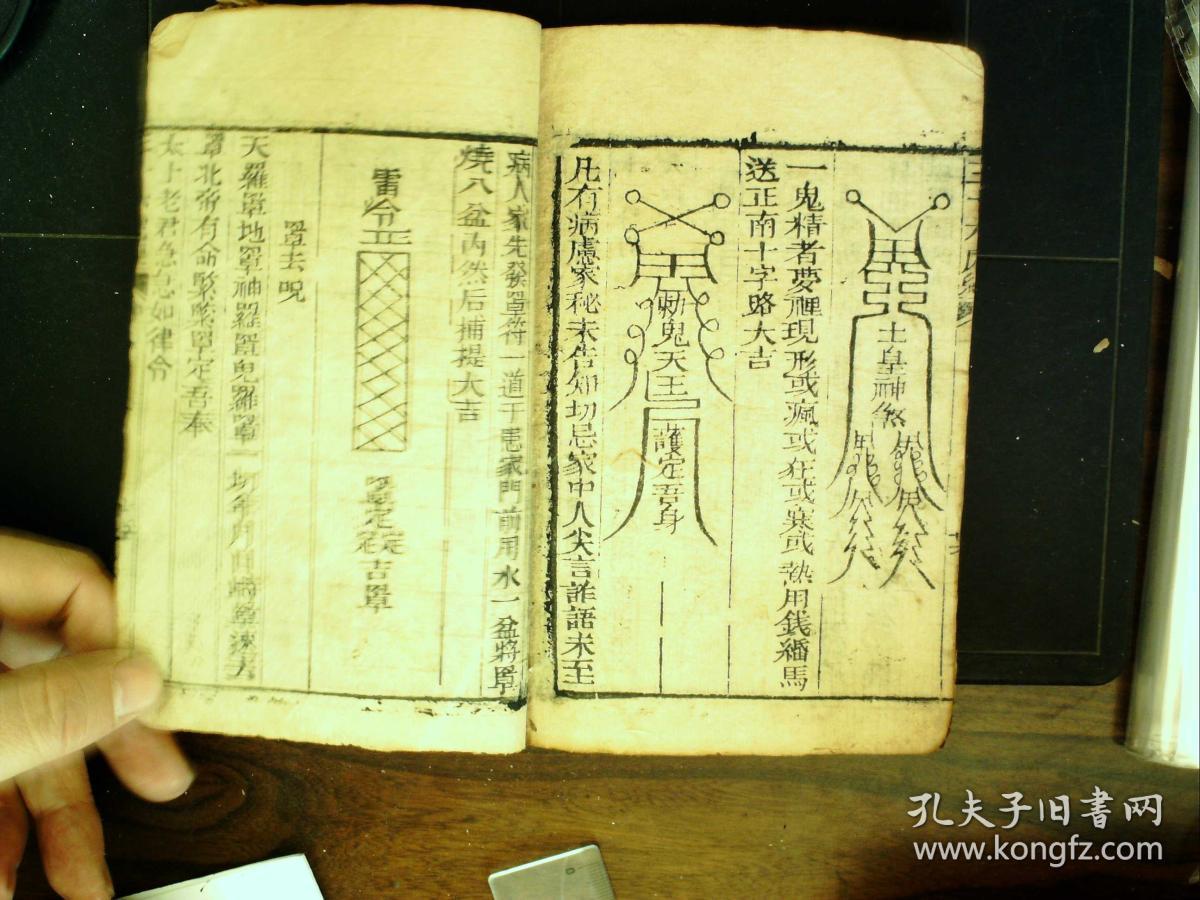 土皇神煞
一鬼精者夢裡現形或瘋或狂或寒或熱用錢繙馬
送正南十字路大吉
斬鬼天王
護定吾身
凡有病處家秘未告知切忌家中人尖言誰語未至
病人家先發罩符一道于患家門前用水一盆將罩
燒入盆內然后捕提大吉
雷令正
罩定
吉罩
罩去咒
天羅罩地罩神羅罩鬼羅罩一切年月日時罩速去
罩北帝有命緊緊罩定吾奉
太上老君急急如律令
孔夫子旧書网
www.kongfz.com